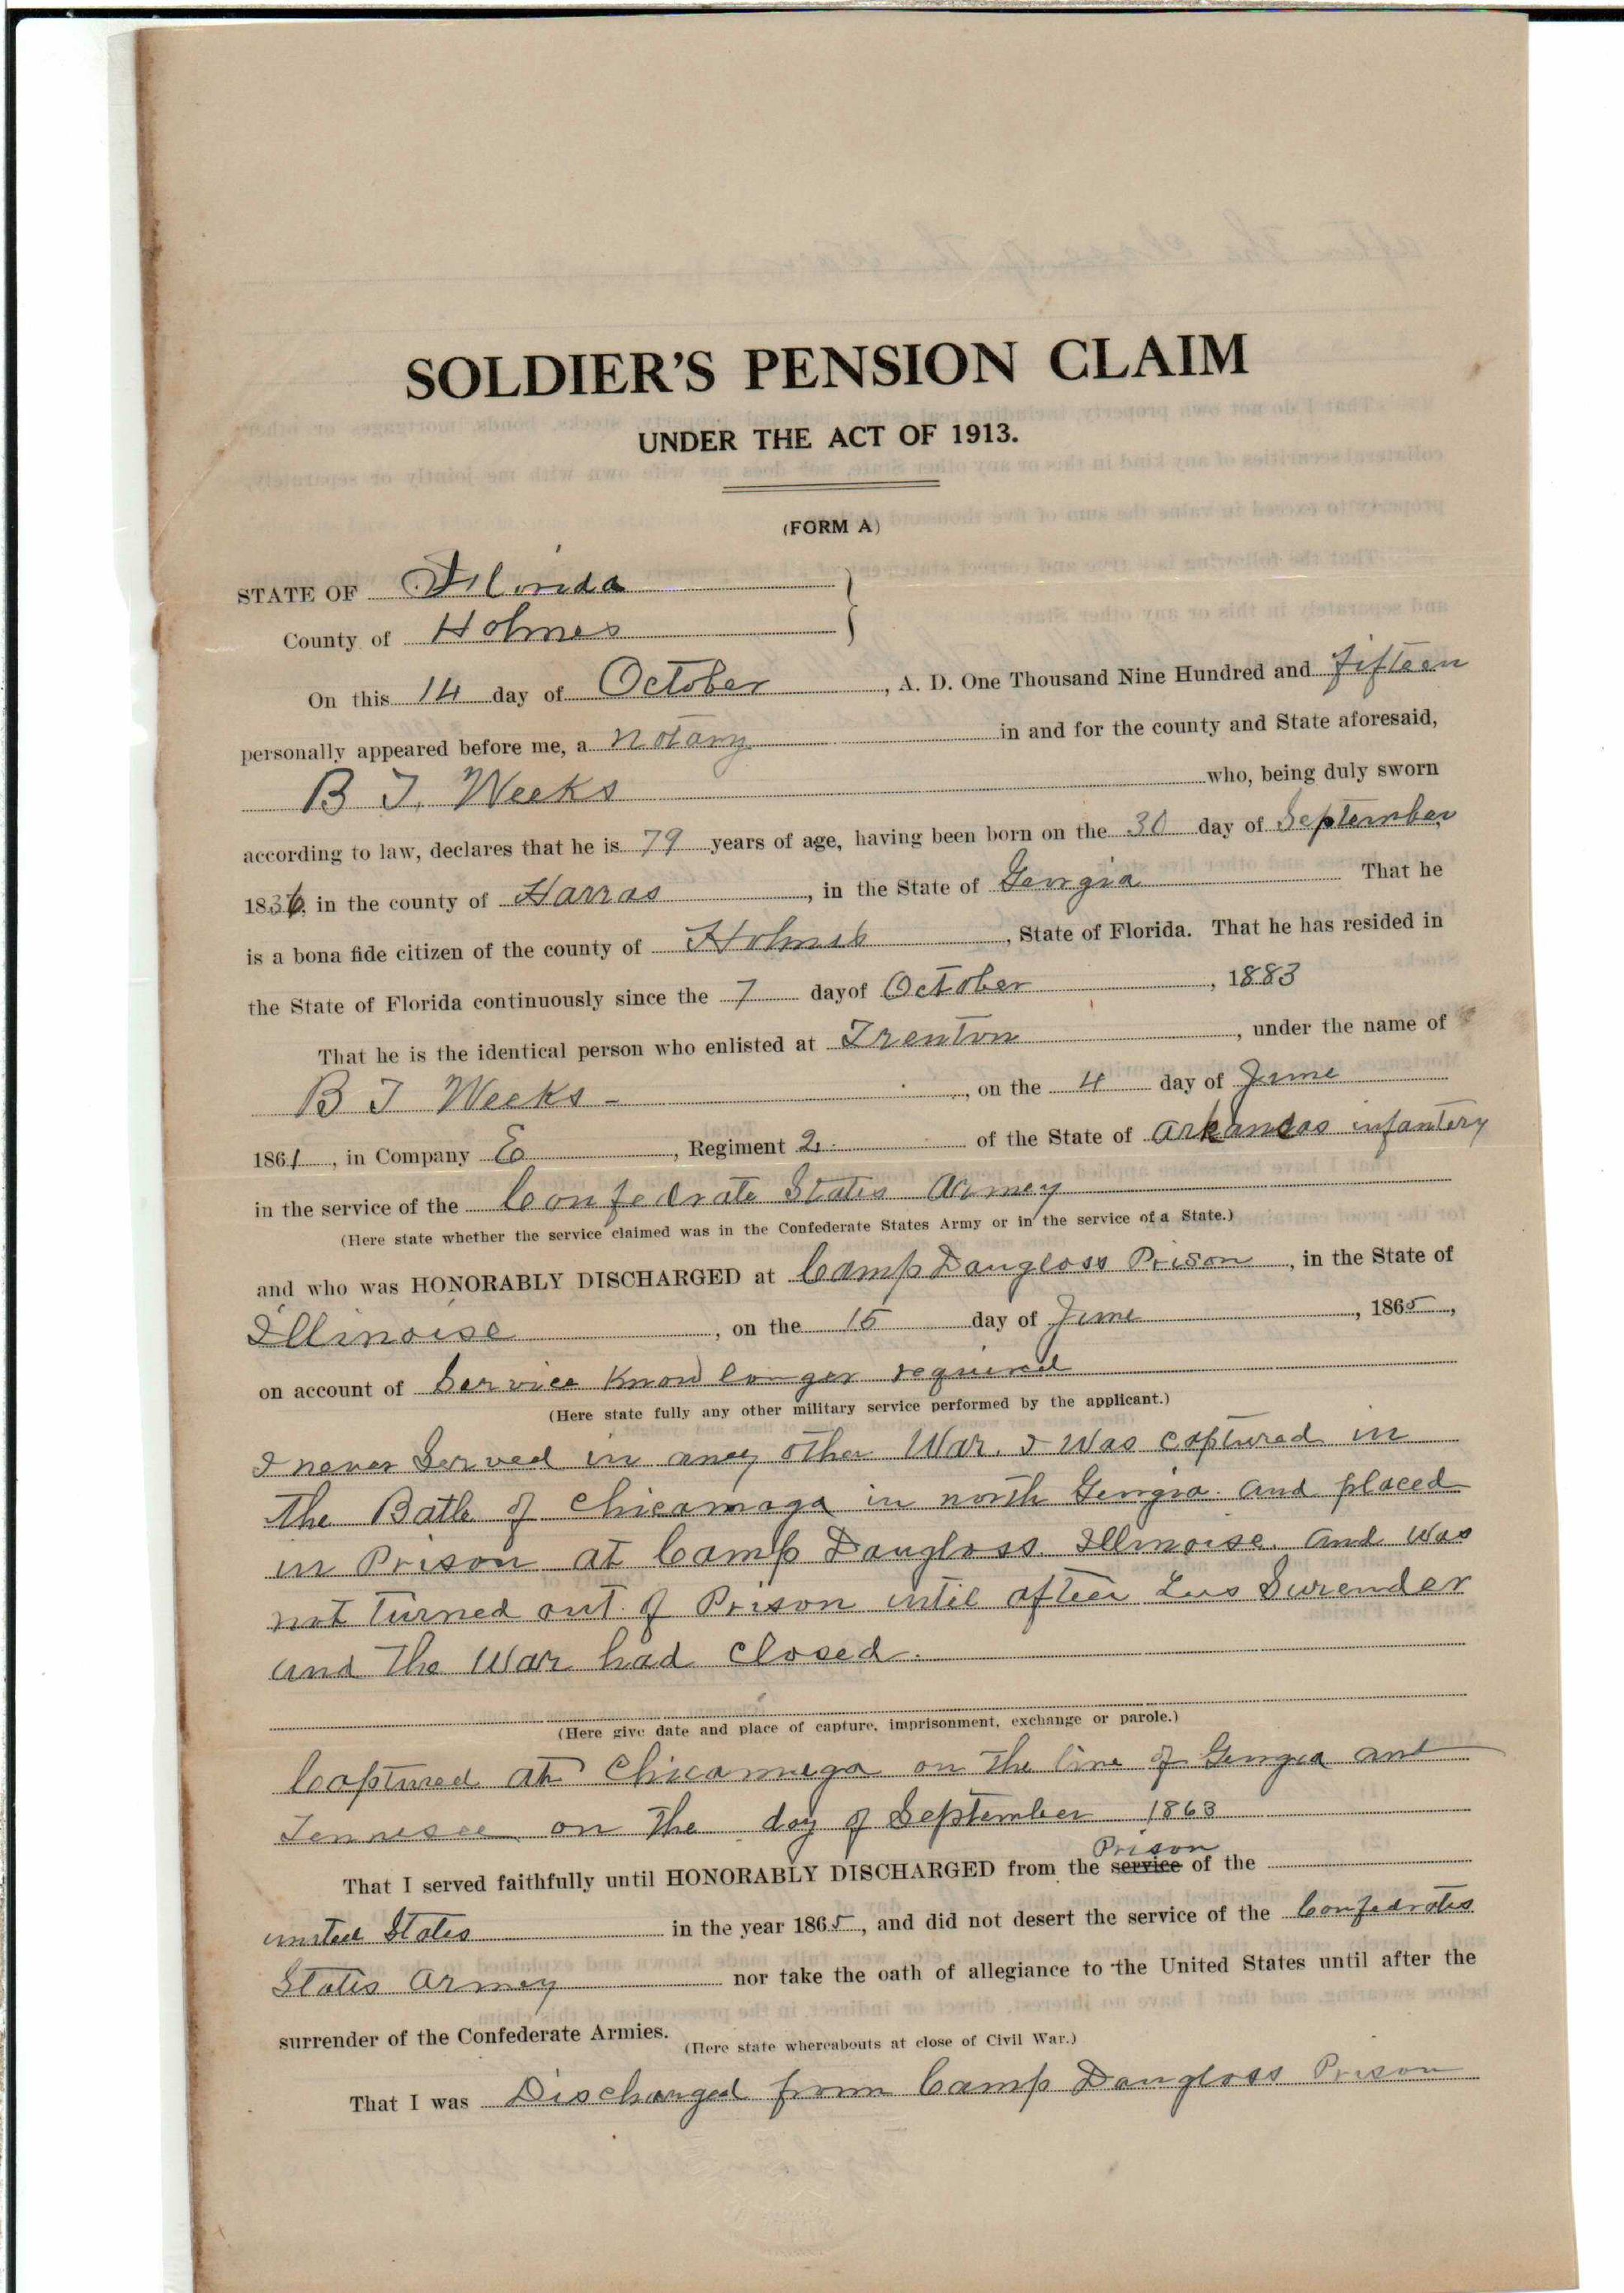 SOLDIER'S PENSION CLAIM
UNDER THE ACT OF 1913.
(FORM A)
STATE OF Florida
County of Holmes
On this 14 day of October, A. D. One Thousand Nine Hundred and fifteen
personally appeared before me, a Notary in and for the county and State aforesaid,
B T. Weeks who, being duly sworn
according to law, declares that he is 79 years of age, having been born on the 30 day of September
1836, in the county of Harras, in the State of Georgia That he
is a bona fide citizen of the county of Holmes, State of Florida. That he has resided in
the State of Florida continuously since the 7 day of October, 1883
That he is the identical person who enlisted at Trenton, under the name of
B T Weeks -, on the 4 day of June
1861, in Company E, Regiment 2. of the State of Arkansas infantery
in the service of the Confedrate States Armey
(Here state whether the service claimed was in the Confederate States Army or in the service of a State.)
and who was HONORABLY DISCHARGED at Camp Daugloss Prison, in the State of
Illinoise, on the 15 day of June, 1865,
on account of Service Know longer required
(Here state fully any other military service performed by the applicant.)
I never Served in aney other War. I Was captured in
the Batle of Chicamaga in north Georgia. and placed
in Prison at Camp Daugloss Illinoise. and Was
not turned out of Prison until after Lees Surender
and The War had Closed.
(Here give date and place of capture, imprisonment, exchange or parole.)
Captured at Chicamuga on The line of Georgia and
Tennesee on The day of September 1863
Prison
That I served faithfully until HONORABLY DISCHARGED from the service of the
united States in the year 1865, and did not desert the service of the Confedrates
States Armey nor take the oath of allegiance to the United States until after the
surrender of the Confederate Armies. (Here state whereabouts at close of Civil War.)
That I was Discharged from Camp Daugloss Prison